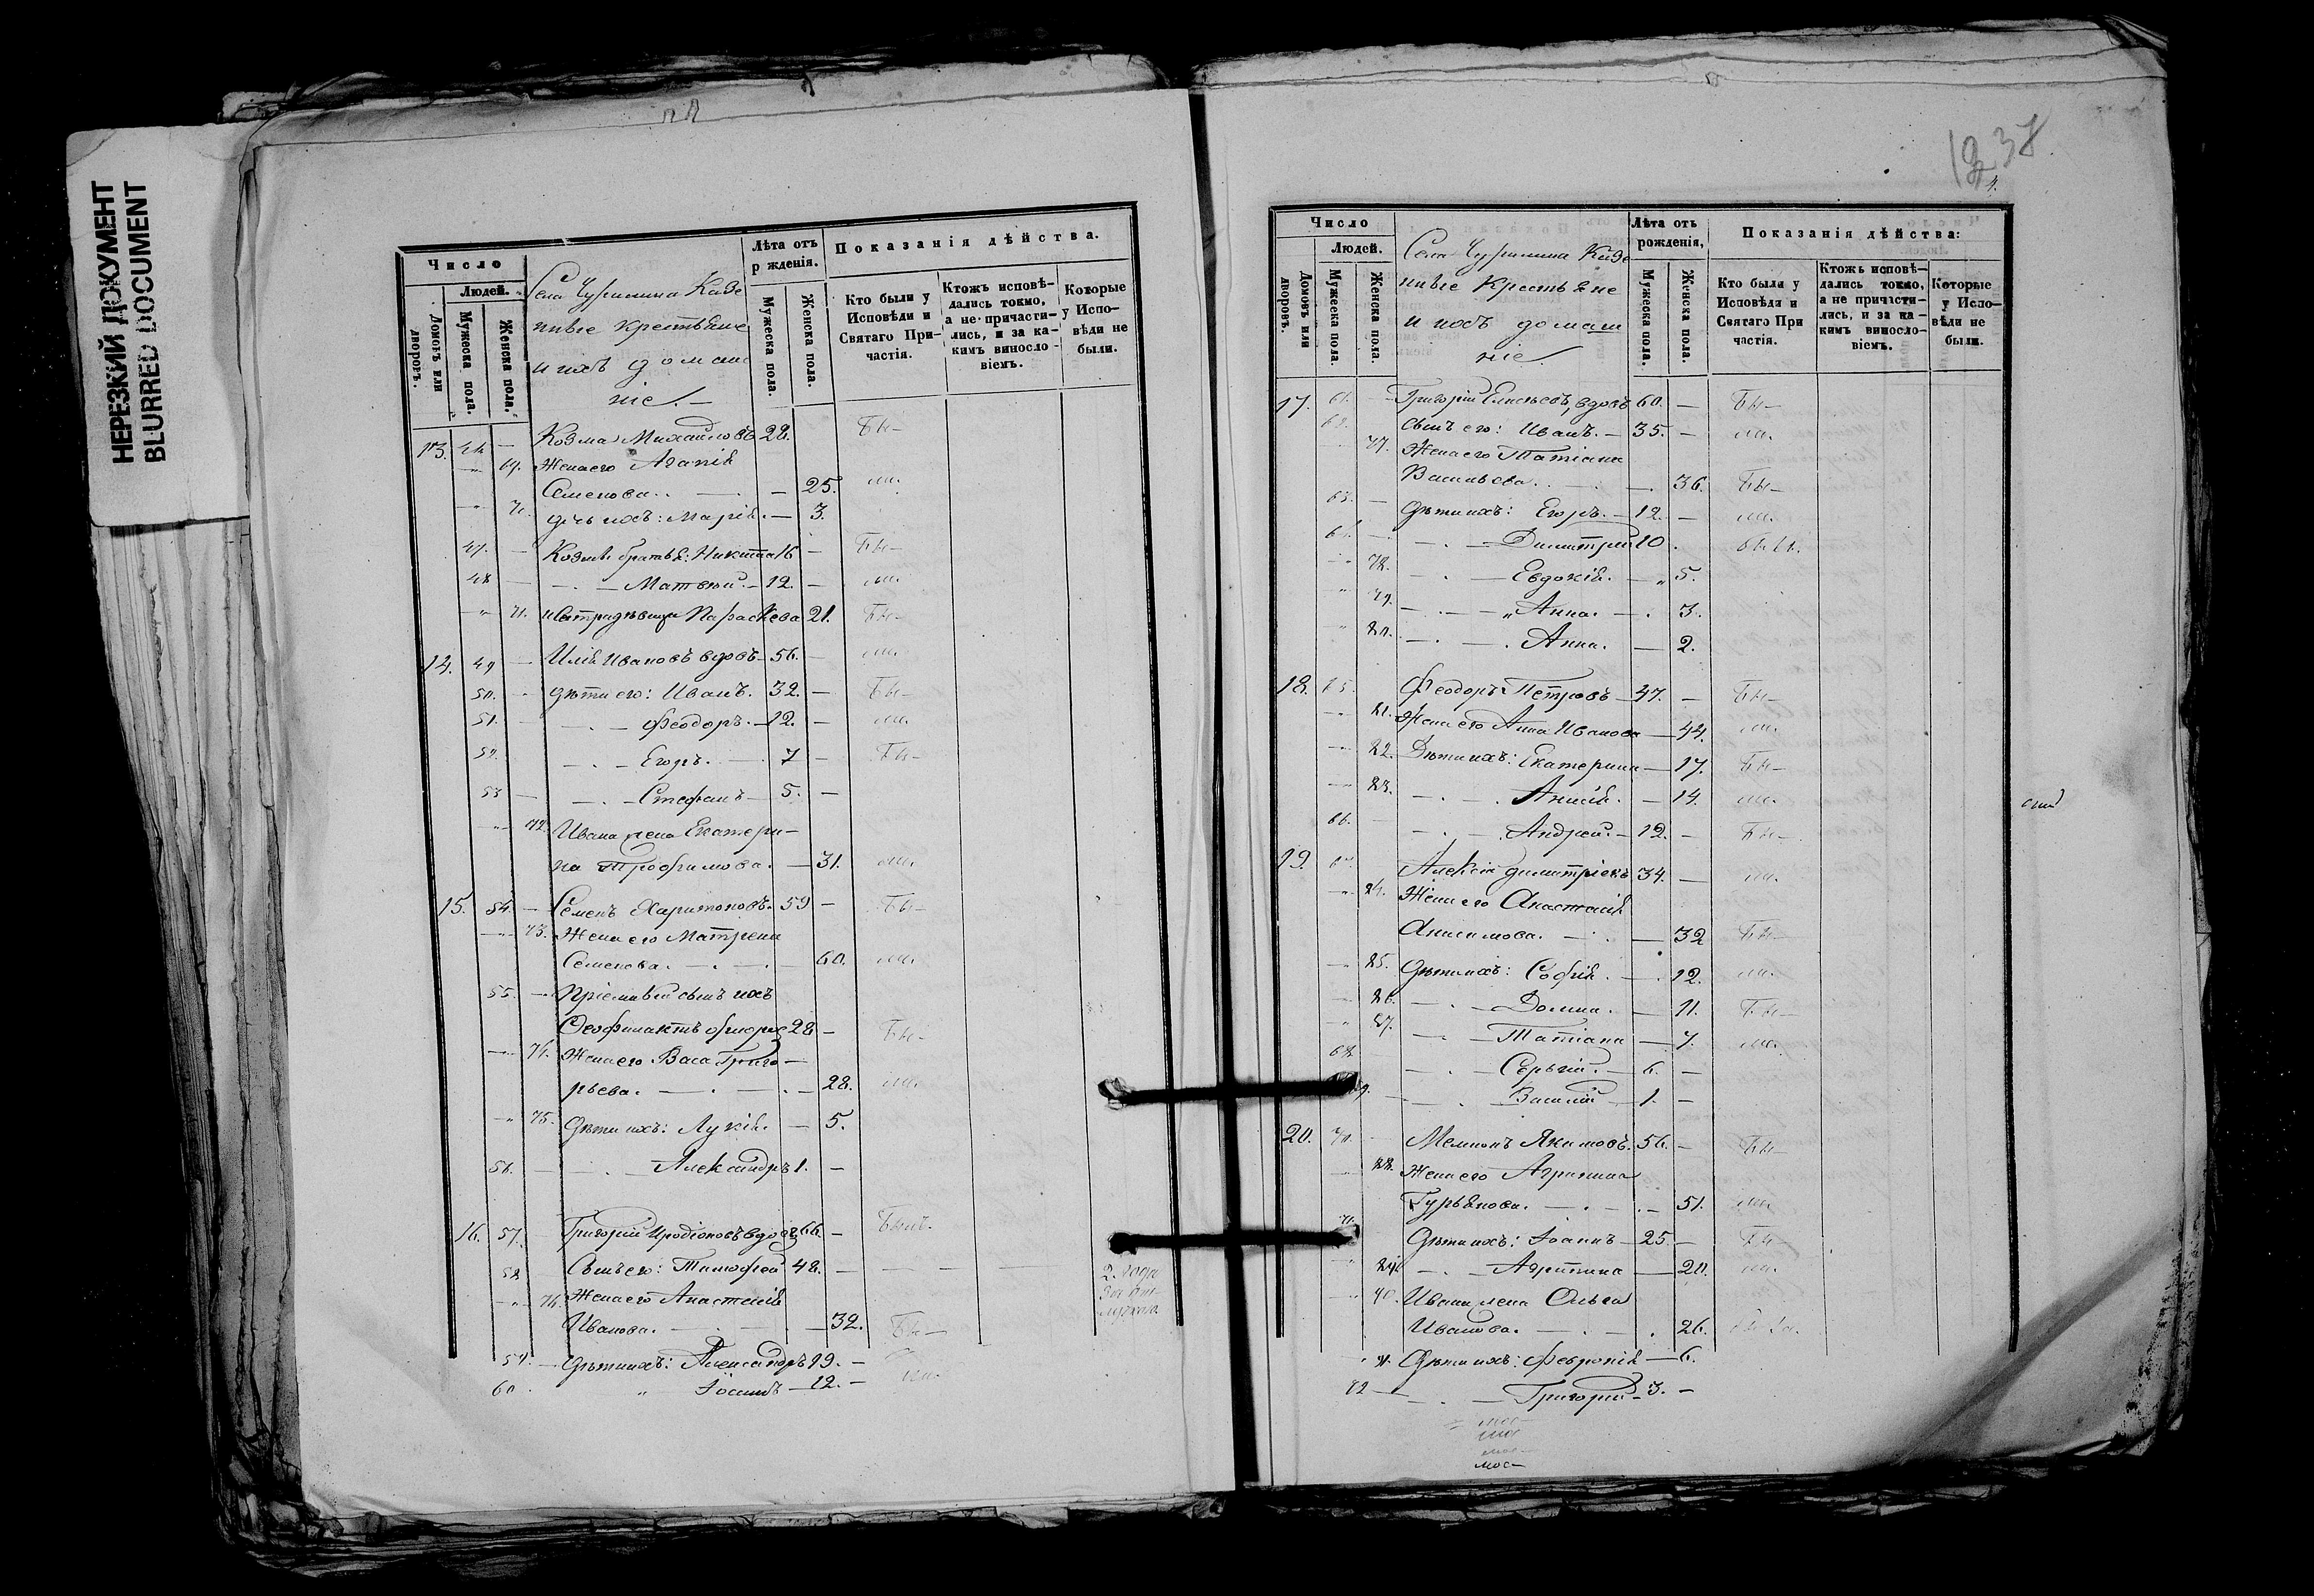 НЕРЕЗКИЙ ДОКУМЕНТ
BLURRED DOCUMENT
Число
Людей.
Домовъ или дворовъ.
Мужеска пола.
Женска пола.
Села Чурилина Казе
нные крестьяне
и ихъ домаш
ніе.
Лѣта отъ
р жденія.
Мужеска пола
Женска пола.
Показанія дѣйства.
Кто были у
Исповѣди и
Святаго При-
частія.
Ктожъ исповѣ-
дались токмо,
а не причасти-
лись, и за ка-
кимъ винносло-
віемъ.
Которые
у Испо-
вѣди не
были.
13. 46 — Козма Михайловъ 28. Бы-
69. Жена его Агапія
Семенова. — 25. ли.
70. дочь ихъ: Марія. — 3.
47. — Козмы братья: Никита 16 — Бы-
48 — Матвѣй. — 12. — ли.
71. и сестра дѣвица Параскева 21. Бы-
14. 49 — Илія Ивановъ вдовъ — 56. — ли.
50. дѣти его: Иванъ. 32. — Бы-
51. Феодоръ. — 12. — ли.
52. Егоръ. 7 — Бы-
53 — Стефанъ — 5. —
72. Ивана жена Екатери-
на Трофимова. — 31. ли.
15. 54. — Семенъ Харитоновъ. 59 — Бы-
73. Жена его Матрена
Семенова. — 60. ли.
55. — Пріемный сынъ ихъ
Феофилактъ 28 — Бы-
74. Жена его Васа Григо-
рьева. — 28. ли.
75. Дѣти ихъ: Лукія. — 5.
56. — Александръ 1. —
16. 57. Григорій Иродіоновъ вдовъ 66. — Былъ.
58 Сынъ его: Тимофей 48. — 2. года
76. Жена его Анастасія
Иванова. — 32. Бы-
59. — Дѣти ихъ: Александръ 19. —
60. " Іоаннъ — 12. — ли.
1237
4.
Число
Людей.
Домовъ или дворовъ.
Мужеска пола.
Женска пола.
Села Чурилина Казе
нные Крестьяне
и ихъ домаш
ніе.
Лѣта отъ
рожденія,
Мужеска пола.
Женска пола.
Показанія дѣйства:
Кто были у
Исповѣди и
Святаго При
частія.
Ктожъ исповѣ-
дались токмо,
а не причасти-
лись, и за ка-
кимъ винносло-
віемъ.
Которые
у Испо-
вѣди не
были.
17. 61. — Григорій Елисѣевъ, вдовъ 60. — Бы-
62. Сынъ его: Иванъ. — 35. — ли.
77. Жена его Татіана
Васильева. — 36. Бы-
63. — Дѣти ихъ: Егоръ. — 12. — ли.
64. — Димитрій 10 . были.
78. — Евдокія. — 5.
79. — Анна. — 3.
80. — Анна. — 2.
18. 65. Феодоръ Петровъ — 47. — Бы-
81. Жена его Анна Иванова — 44. ли.
82. Дѣти ихъ: Екатерина — 17. Бы-
83. — Анисія. — 14. ли.
66. — Андрей. — 12. — Бы-
19. 67. Алексій Димитріевъ 34. — ли.
84. Жена его Анастасія
Анисимова. — 32 Бы-
85. Дѣти ихъ: Софія. — 12. ли.
86. — Домна. — 11. Бы-
87. — Татіана — 7. ли.
68. — Сергій. — 6. —
69. — Василій — 1. —
20. 70. — Мемнонъ Якимовъ. 56. — Бы-
88. Жена его Агрипина
Гурьянова. — 51. ли.
71. Дѣти ихъ: Іоаннъ — 25. — Бы-
89. — Агрипина — 20. ли.
90. Ивана жена Ольга
Иванова. — 26. были.
91. Дѣти ихъ: Февронія — 6.
72 — Григорій — 3. —